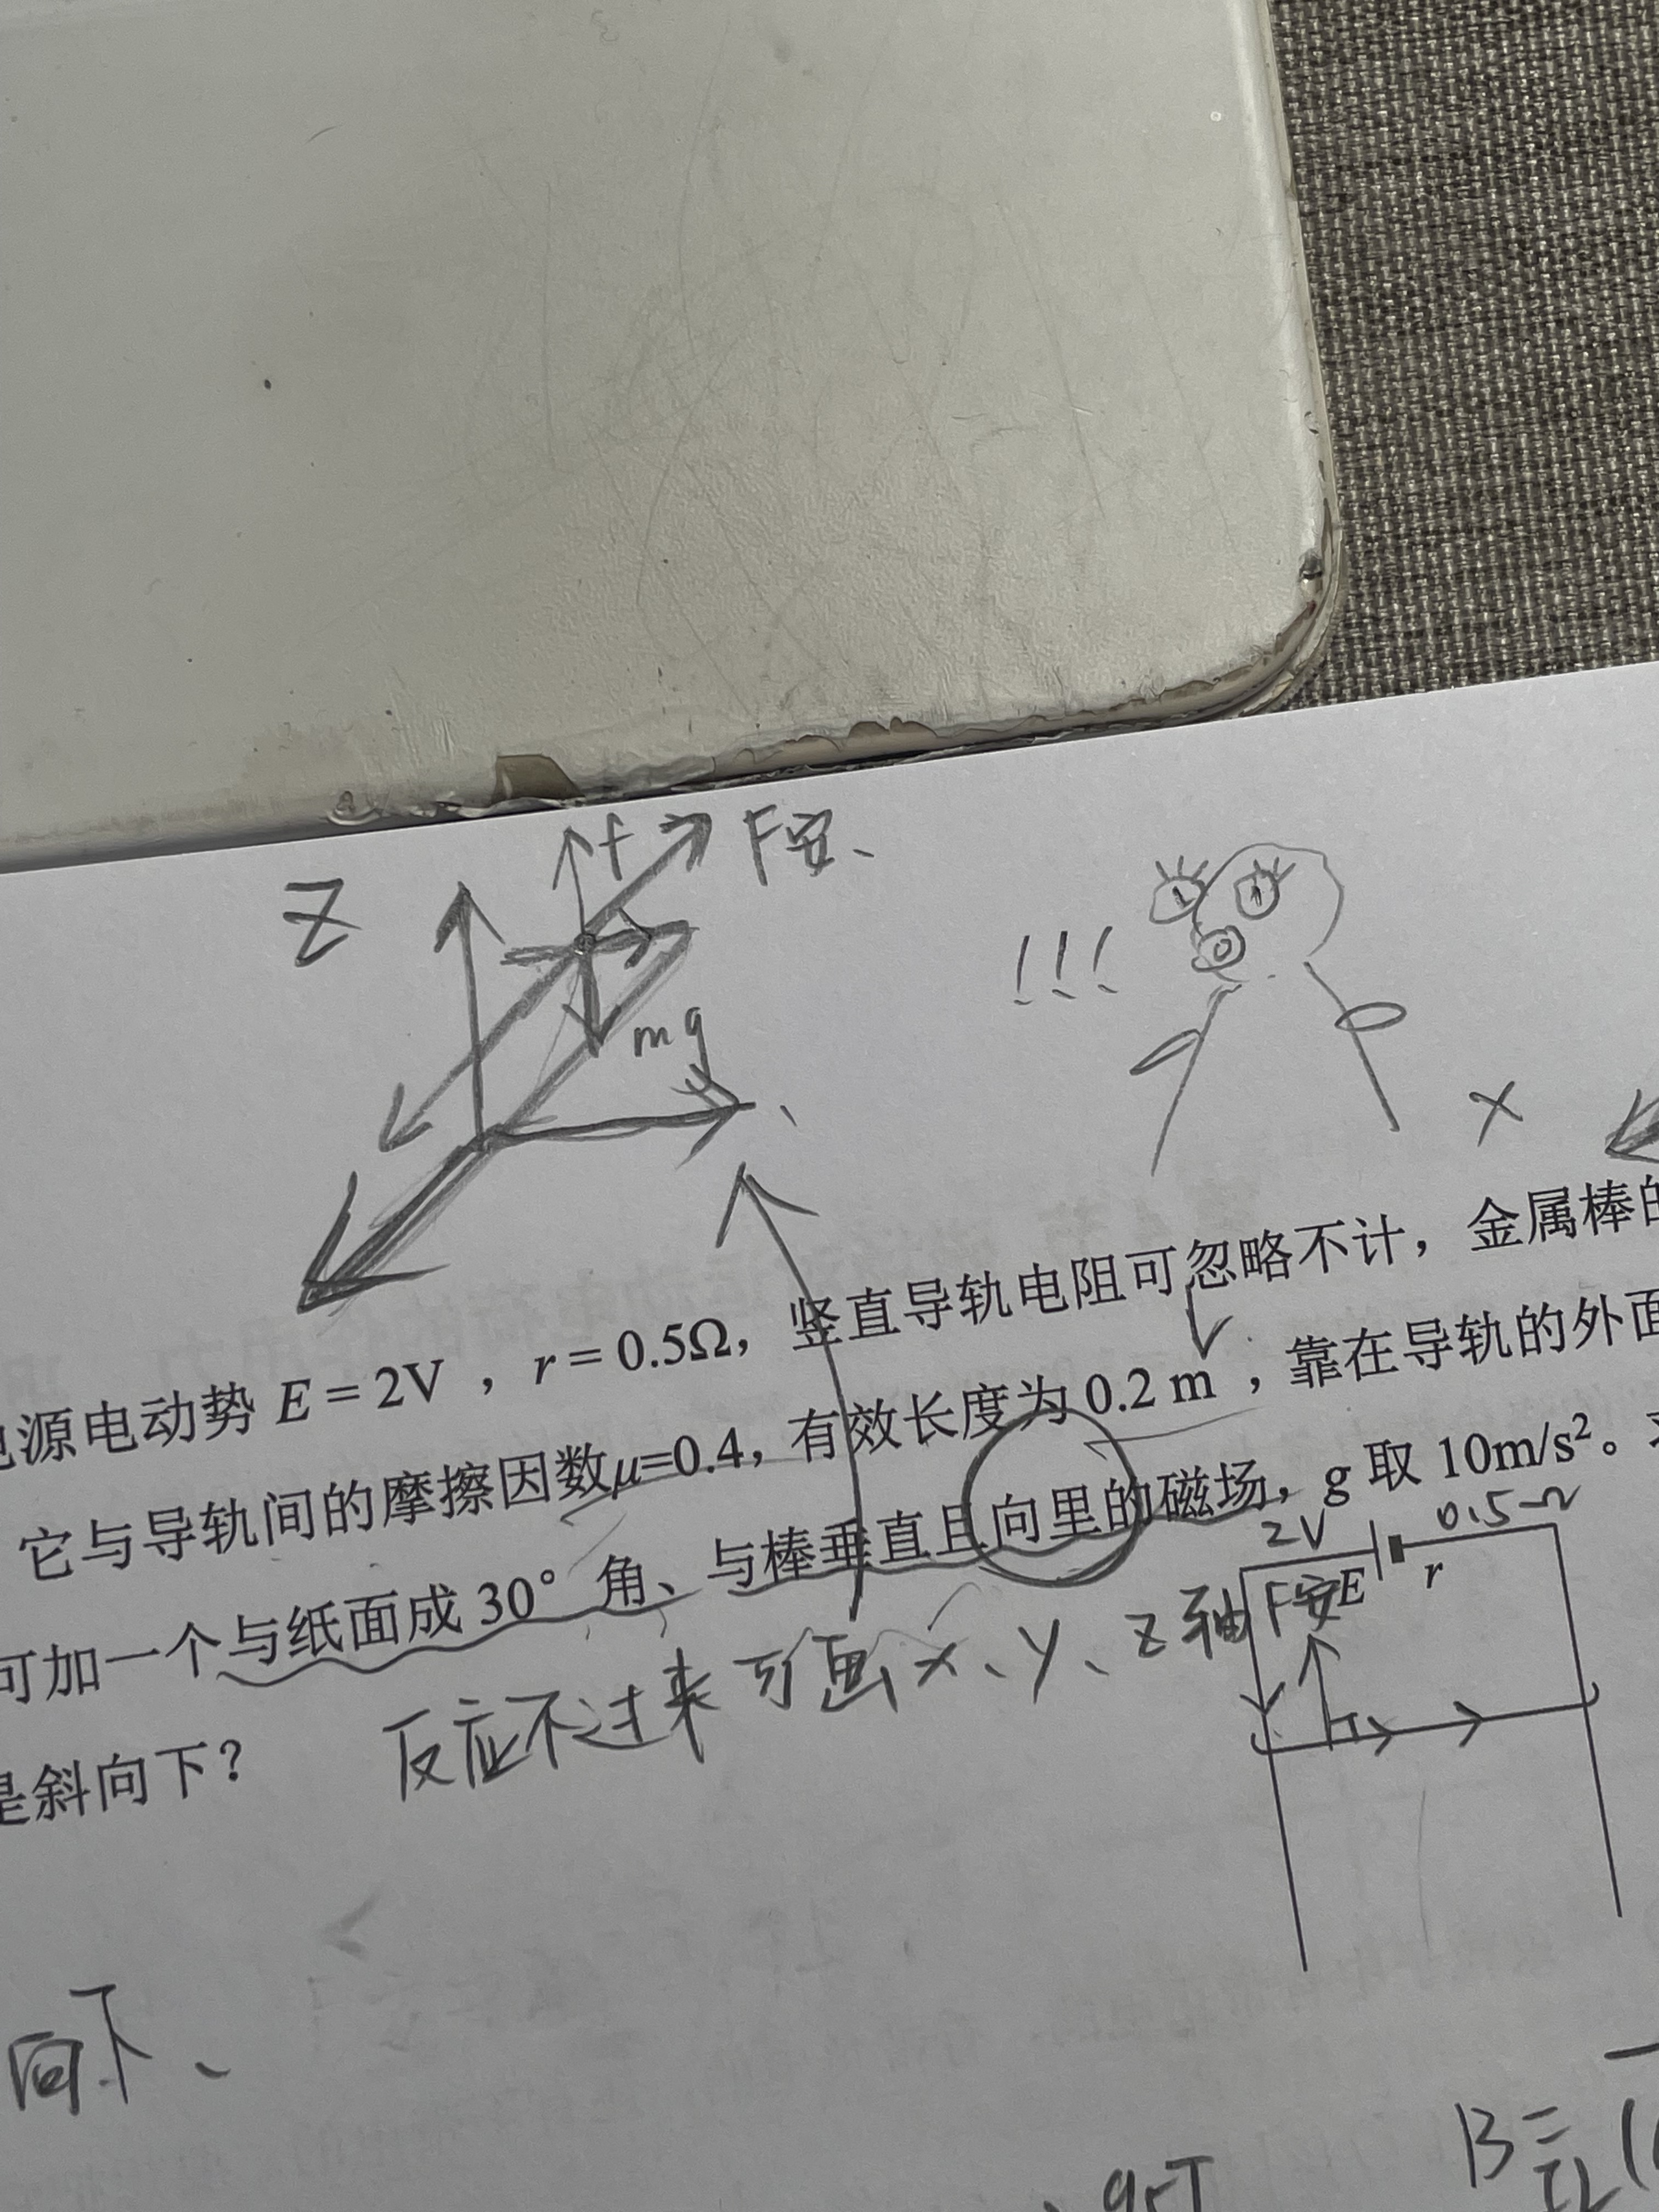 f F安、
Z
mg
!!!
x
源电动势 E = 2V , r = 0.5Ω, 竖直导轨电阻可忽略不计, 金属棒的
它与导轨间的摩擦因数μ=0.4, 有效长度为 0.2 m , 靠在导轨的外面
可加一个与纸面成 30° 角、与棒垂直且向里的磁场, g 取 10m/s²。
是斜向下?
2V 0.5Ω
E r
F安
反应不过来可画 x、y、z轴
向下、
B =
IL